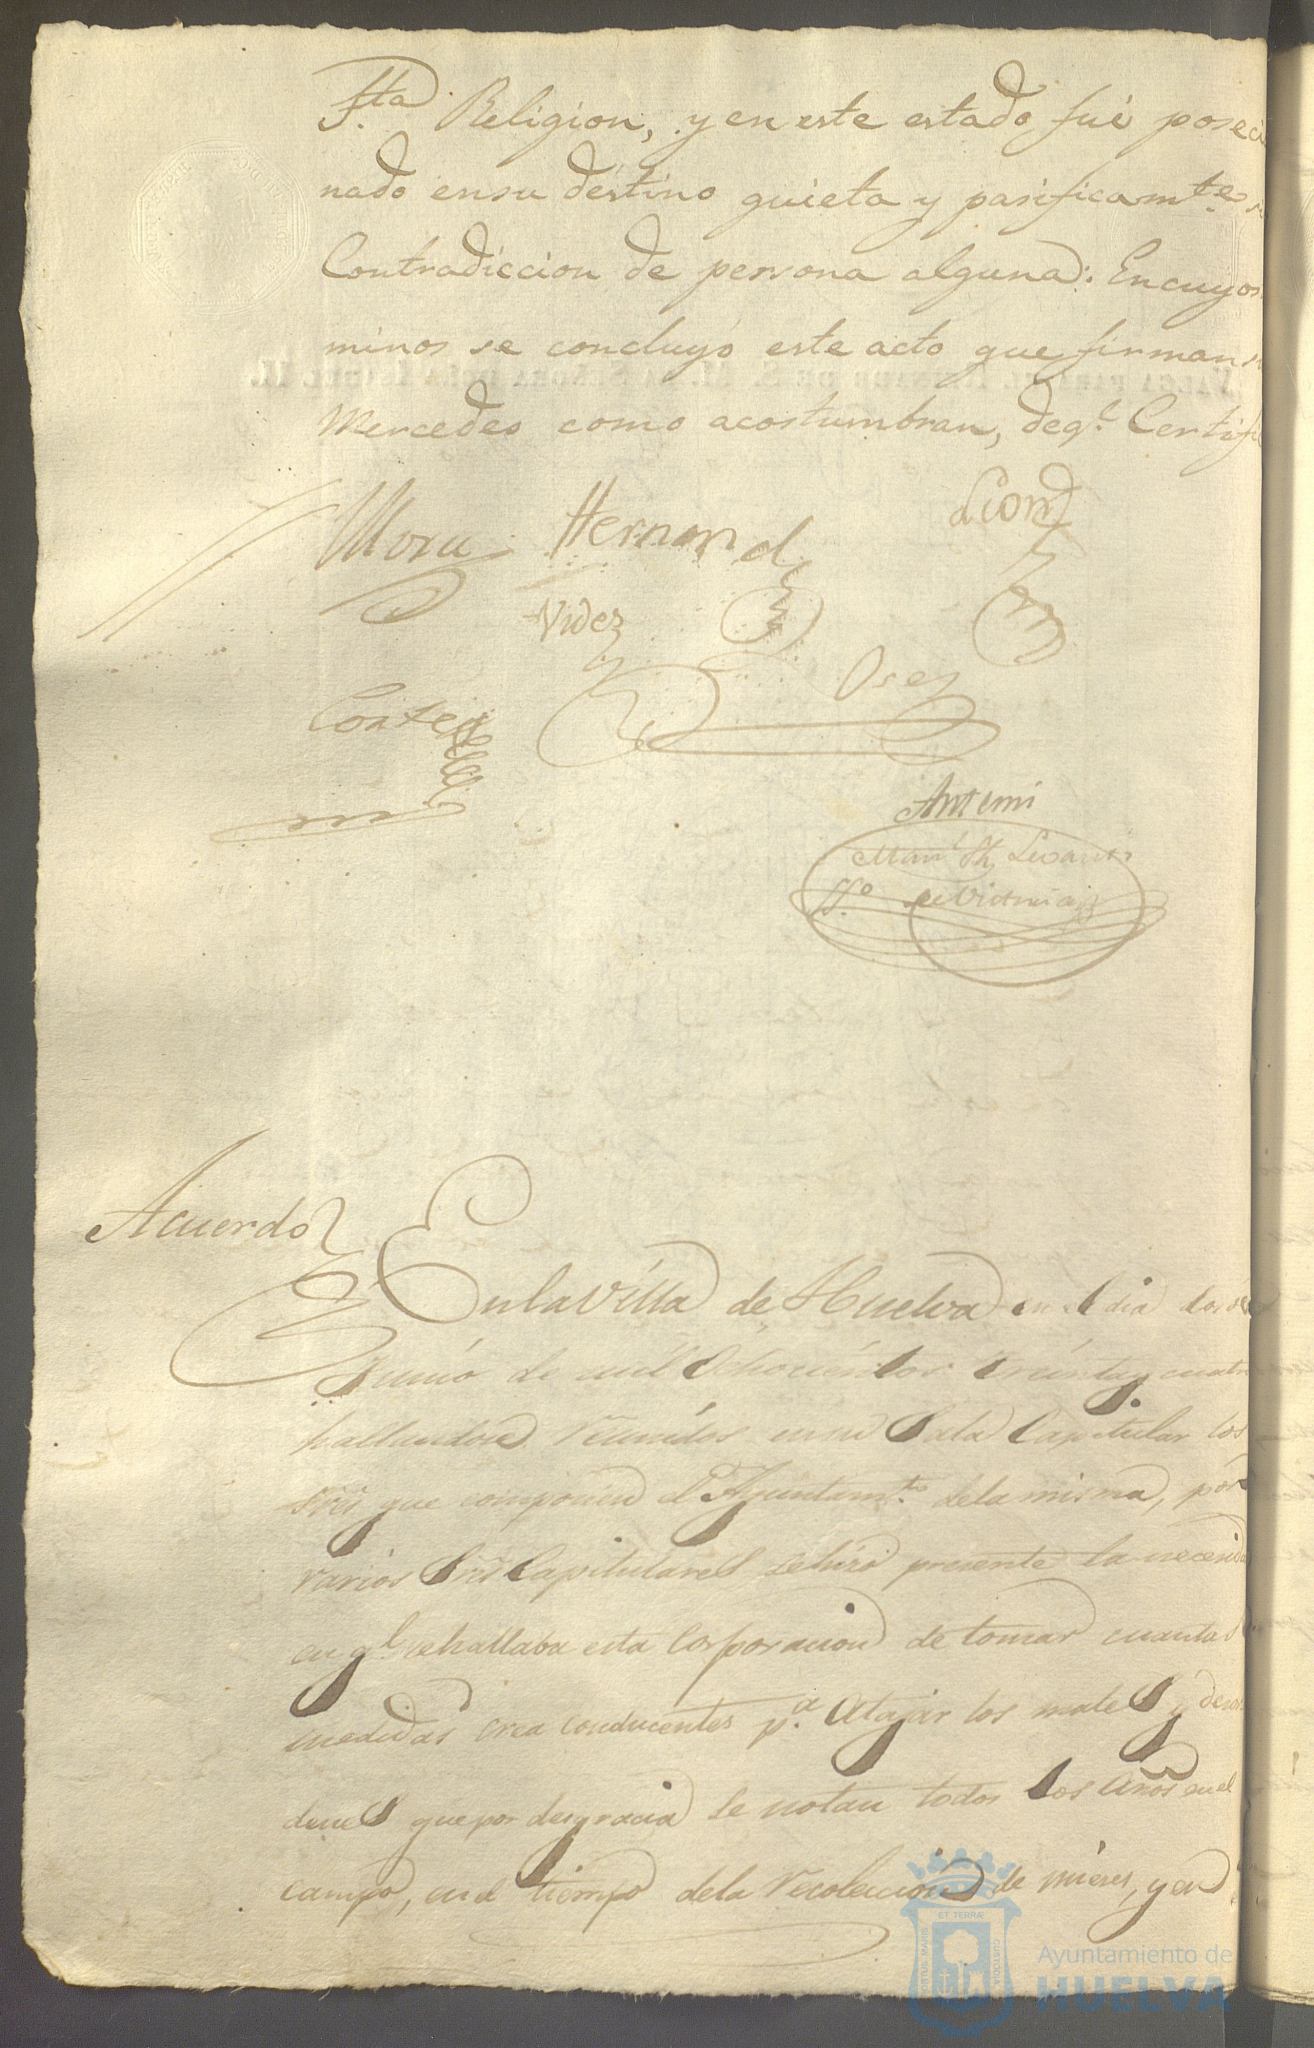 Sta. Religion, y en este estado fué poseci
nado en su destino quieta y pasificamte.
Contradiccion de persona alguna: En cuyos
minos se concluyó este acto que firman
Mercedes como acostumbran, de ql. Certifi
Mora Hernand
Videz
Cortes
Antemi
Acuerdo
En la Villa de Huelva en el dia dos de
Junio de mil Ochocientos treinta y cuatro
hallandose reunidos en su Sala Capitular los
Sres que componen el Ayuntamto. de la misma, por
varios Sres Capitulares se hizo presente la necesida
en ql. se hallaba esta Corporacion de tomar cuantas
medidas crea conducentes pa. Atajar los males y desor
denes que por desgracia se notan todos los años en el
campo, en el tiempo de la recoleccion de mieses, y en
VALGA PARA EL REINADO DE S. M. LA SEÑORA DOÑA ISABEL II.
Ayuntamiento de
HUELVA